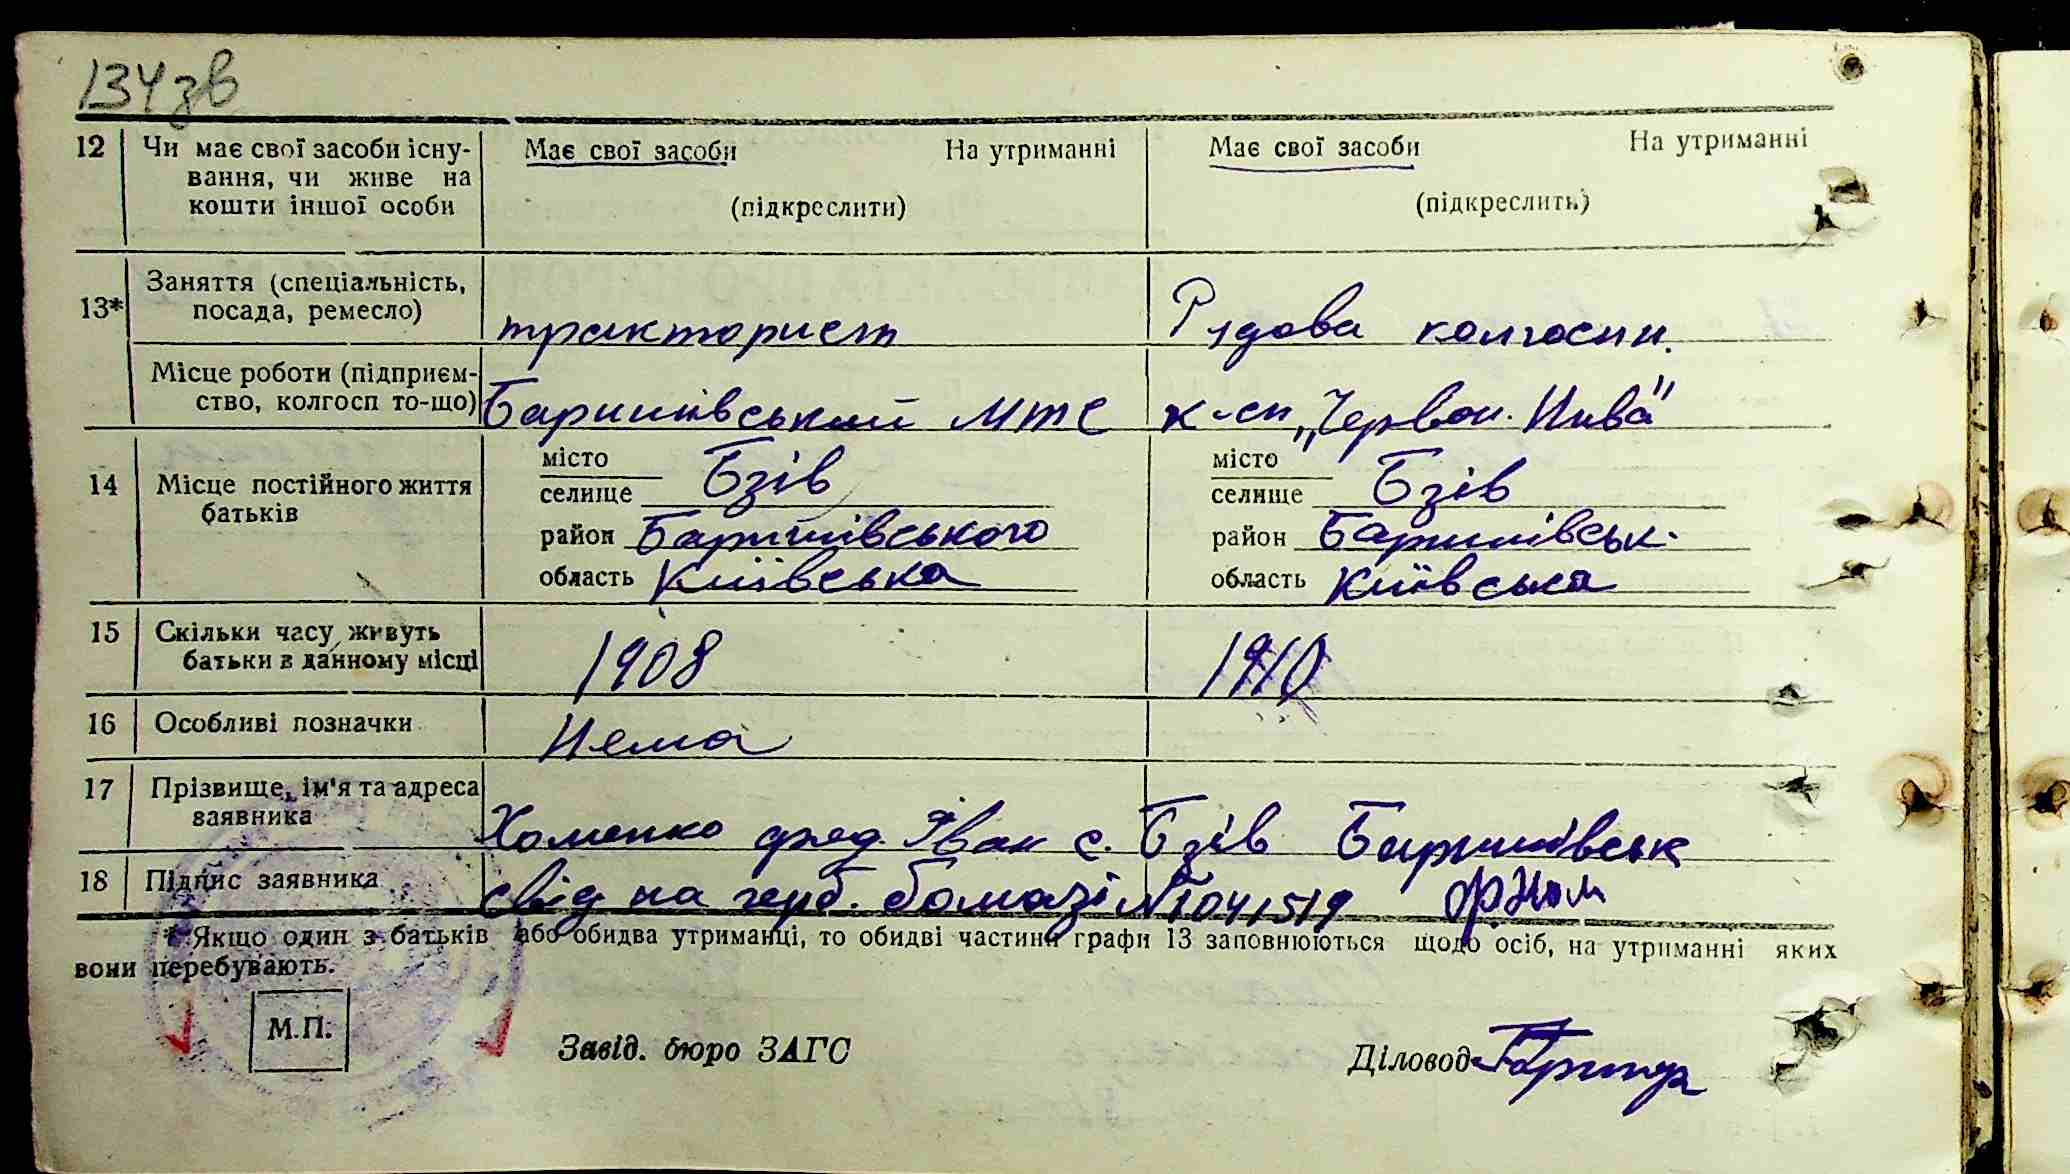 134зв
12 Чи має свої засоби існу- Має свої засоби На утриманні Має свої засоби На утриманні
вання, чи живе на
кошти іншої особи (підкреслити) (підкреслить)
13* Заняття (спеціальність,
посада, ремесло) тракторист Рядова колгоспн.
Місце роботи (підприєм-
ство, колгосп то-що) Баришівський МТС к-сп „Червон. Нива"
місто місто
14 Місце постійного життя селище Бзів селище Бзів
батьків
район Баришівського район Баришівськ.
область Київська область Київська
15 Скільки часу живуть
батьки в данному місці 1908 1910
16 Особливі позначки Нема
17 Прізвище, ім'я та адреса
заявника Хоменко фед. Іван с. Бзів Баришівськ
18 Підпис заявника свід на герб. бомазі № 041519
* Якщо один з батьків або обидва утриманці, то обидві частини графи 13 заповнюються щодо осіб, на утриманні яких
вони перебувають.
М.П.
Завід. бюро ЗАГС Діловод